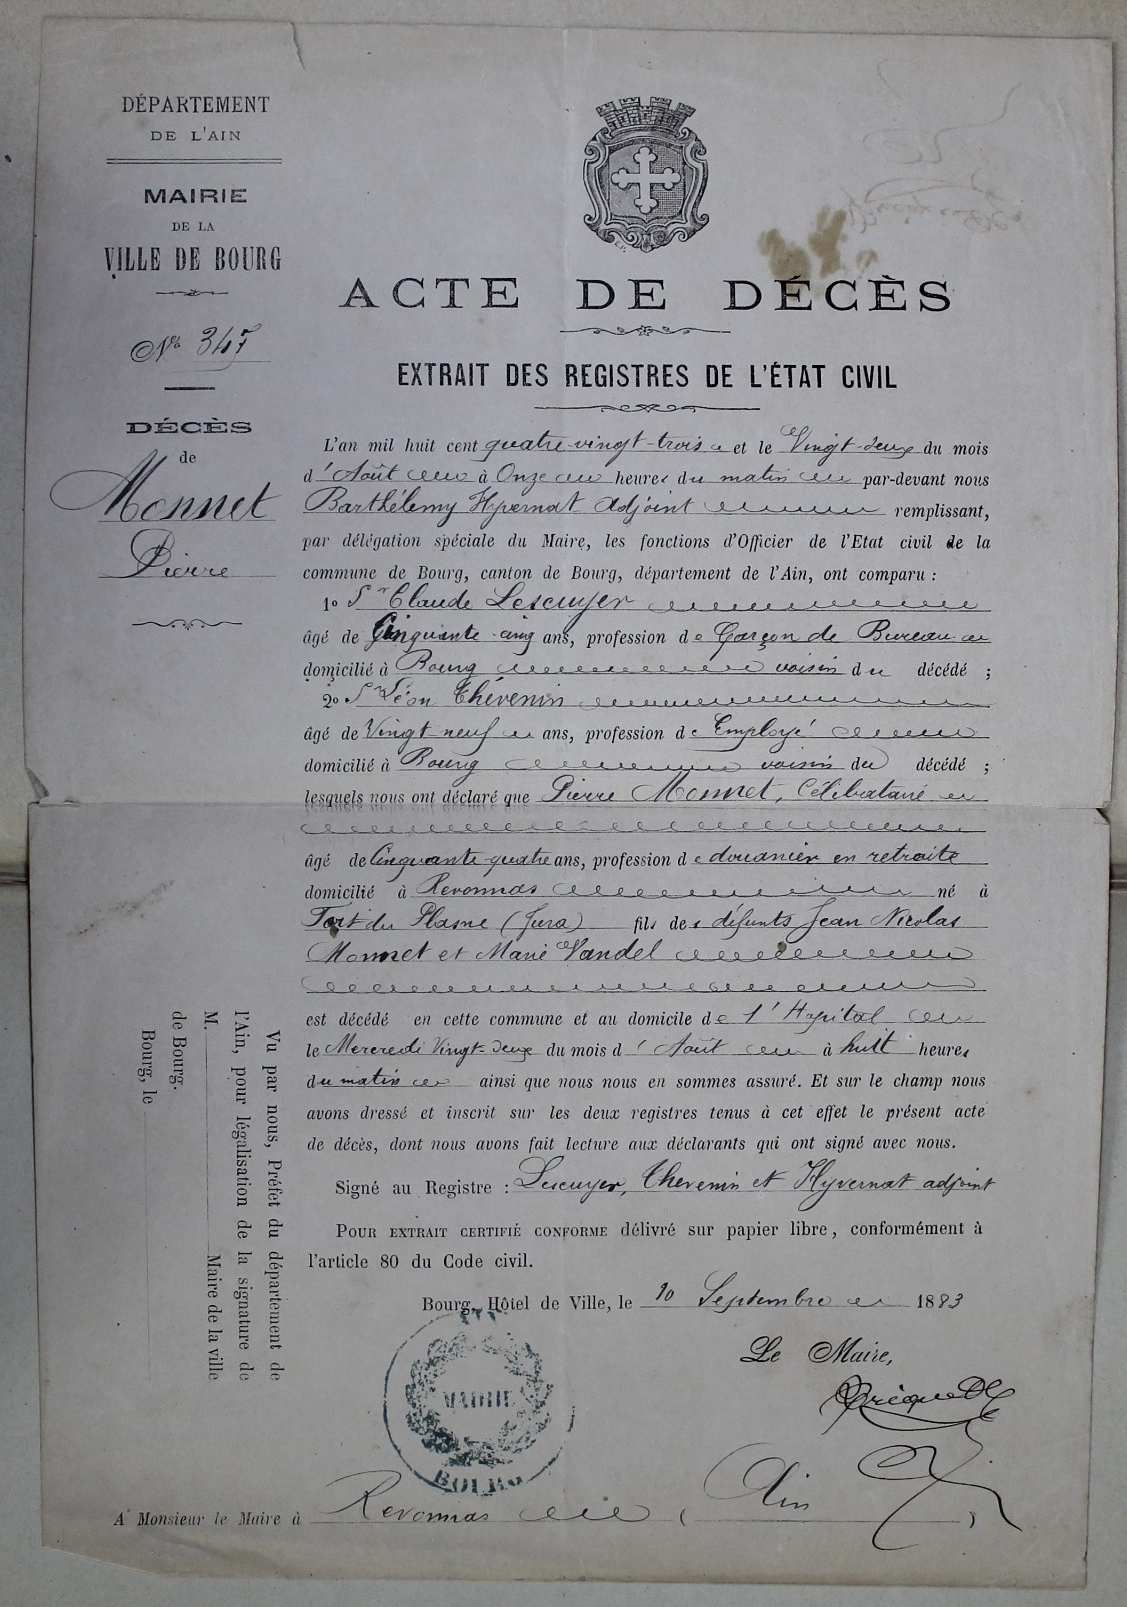 DÉPARTEMENT
DE L'AIN
MAIRIE
DE LA
VILLE DE BOURG
No 347
DÉCÈS
de
Monnet
Pierre
ACTE DE DÉCÈS
EXTRAIT DES REGISTRES DE L'ÉTAT CIVIL
L'an mil huit cent quatre-vingt-trois et le Vingt-deux du mois
d'Août à Onze heures du matin par-devant nous
Barthélemy Hyvernat Adjoint remplissant,
par délégation spéciale du Maire, les fonctions d'Officier de l'Etat civil de la
commune de Bourg, canton de Bourg, département de l'Ain, ont comparu :
1o Sr Claude Lescuyer
âgé de Cinquante-cinq ans, profession de Garçon de Bureau
domicilié à Bourg voisin du décédé ;
2o Sr Léon Thévenin
âgé de Vingt-neuf ans, profession de Employé
domicilié à Bourg voisin du décédé ;
lesquels nous ont déclaré que Pierre Monnet, Célibataire
âgé de Cinquante-quatre ans, profession de douanier en retraite
domicilié à Revonnas né à
Fort du Plasne (Jura) fils des défunts Jean Nicolas
Monnet et Marie Vandel
est décédé en cette commune et au domicile de l'Hopital
le Mercredi Vingt-deux du mois d'Août à huit heures
du matin ainsi que nous nous en sommes assuré. Et sur le champ nous
avons dressé et inscrit sur les deux registres tenus à cet effet le présent acte
de décès, dont nous avons fait lecture aux déclarants qui ont signé avec nous.
Signé au Registre : Lescuyer, Thevenin et Hyvernat adjoint
POUR EXTRAIT CERTIFIÉ CONFORME délivré sur papier libre, conformément à
l'article 80 du Code civil.
Bourg, Hôtel de Ville, le 10 Septembre 1883
Le Maire,
MAIRIE
BOURG
A Monsieur le Maire à Revonnas (Ain)
Vu par nous, Préfet du département de
l'Ain, pour légalisation de la signature de
M. Maire de la ville
de Bourg.
Bourg, le